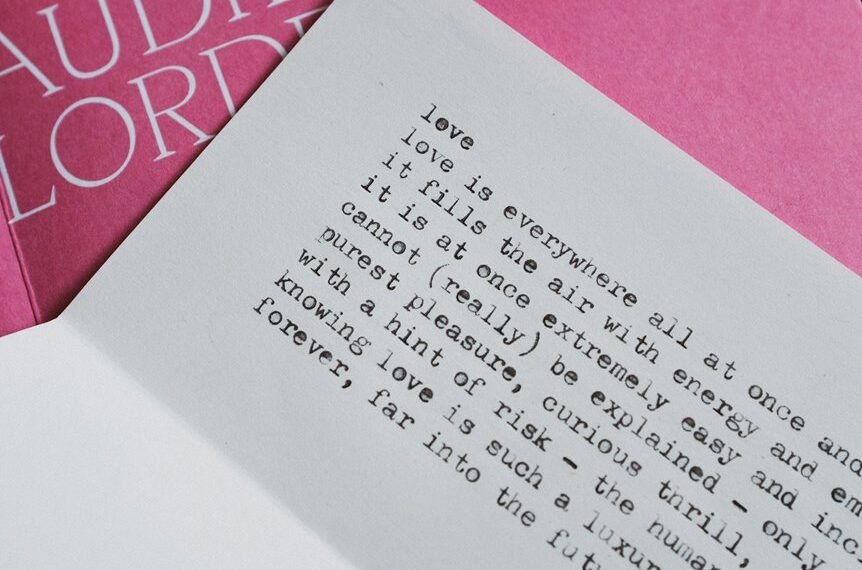 LORD
love
love is everywhere all at once and
it fills the air with energy and
it is at once extremely easy and
cannot (really) be explained - only
purest pleasure, curious thrill,
with a hint of risk - the human
knowing love is such a
forever, far into the